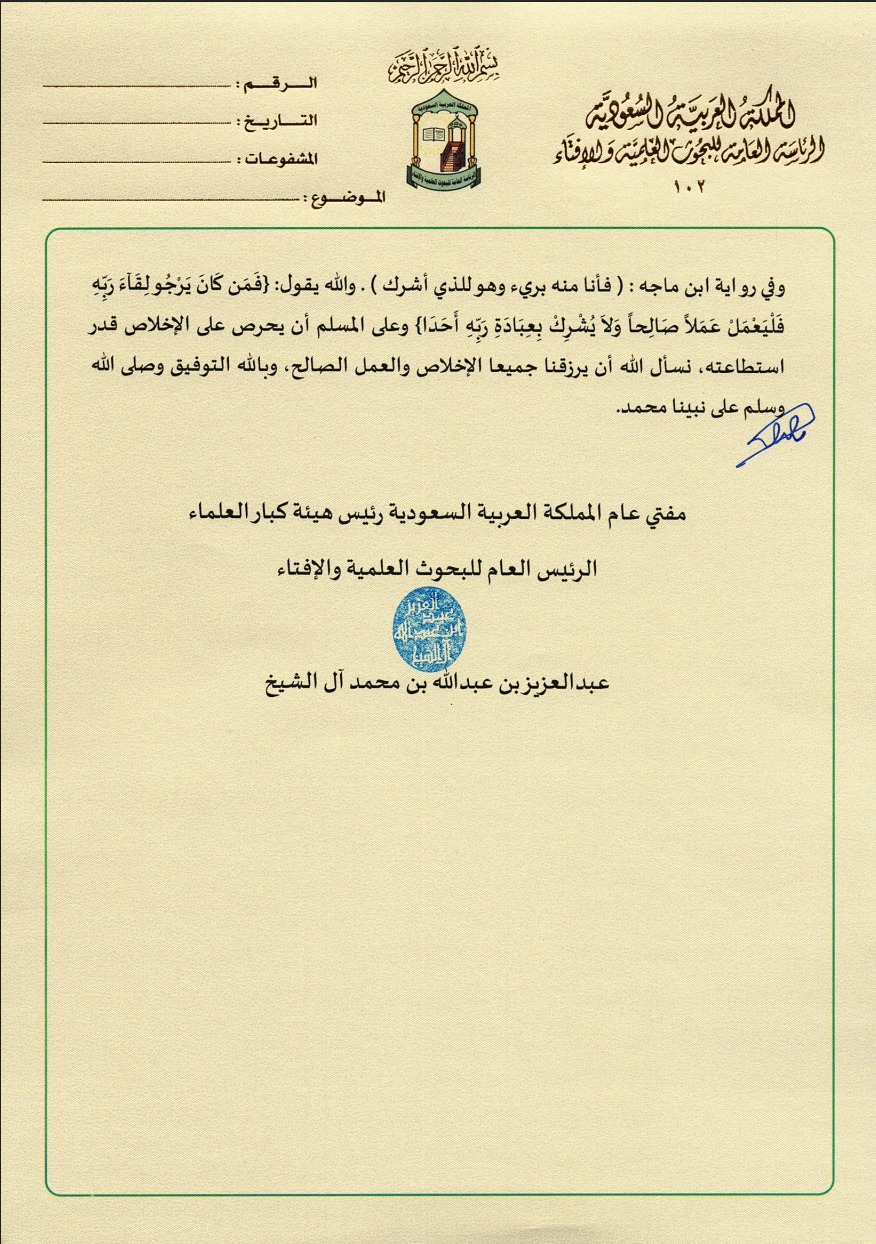 بسم الله الرحمن الرحيم
المملكة العربية السعودية
الرئاسة العامة للبحوث العلمية والإفتاء
١٠٢
الرقم :
التاريخ :
المشفوعات :
الموضوع :
المملكة العربية السعودية
الرئاسة العامة للبحوث العلمية والإفتاء
وفي رواية ابن ماجه : ( فأنا منه بريء وهو للذي أشرك ) . والله يقول: {فَمَن كَانَ يَرْجُو لِقَآءَ رَبِّهِ
فَلْيَعْمَلْ عَمَلاً صَالِحاً وَلاَ يُشْرِكْ بِعِبَادَةِ رَبِّهِ أَحَدَا} وعلى المسلم أن يحرص على الإخلاص قدر
استطاعته، نسأل الله أن يرزقنا جميعا الإخلاص والعمل الصالح، وبالله التوفيق وصلى الله
وسلم على نبينا محمد.
مفتي عام المملكة العربية السعودية رئيس هيئة كبار العلماء
الرئيس العام للبحوث العلمية والإفتاء
عبدالعزيز بن عبدالله بن محمد آل الشيخ